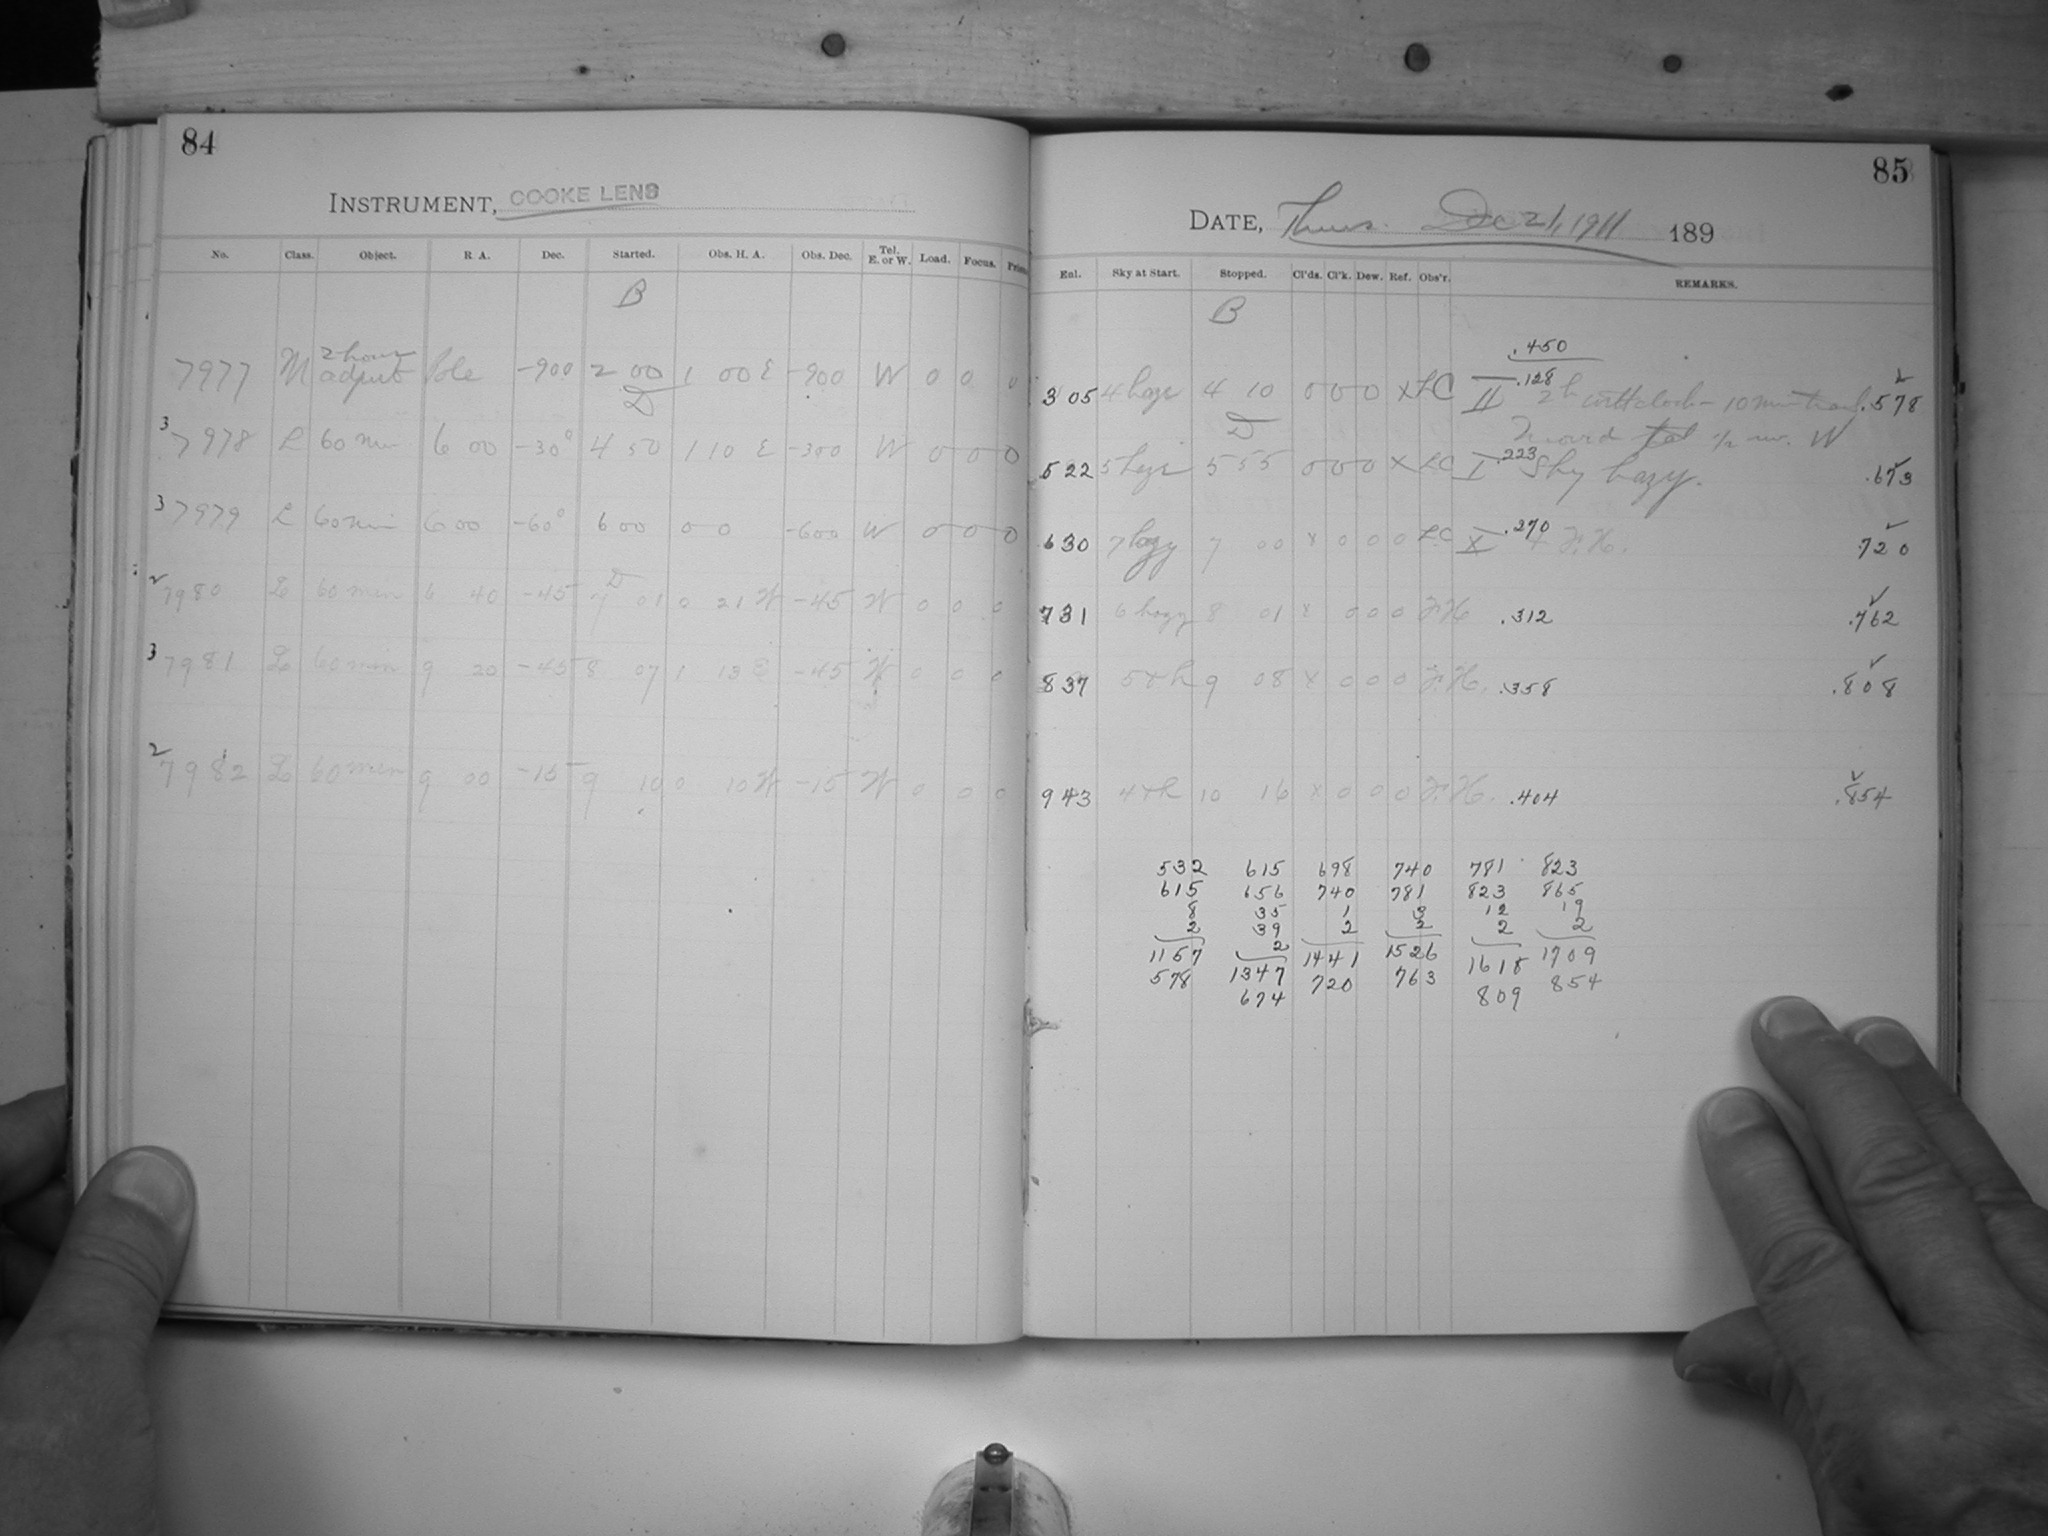 84
INSTRUMENT, COOKE LENS
No. Class. Object. R A. Dec. Started. Obs. H. A. Obs. Dec. Tel. E. or W. Load. Focus.
B
7977 M 2 hour adjust Pole -900 2 00 1 00 E -900 W 0 0 0
D
3 7978 L 60 min 6 00 -30° 4 50 1 10 E -300 W 0 0 0
3 7979 L 60 min 6 00 -60° 6 00 0 0 -600 W 0 0 0
D
2 7980 L 60 min 6 40 -45 7 01 0 21 W -45 W 0 0 0
3 7981 L 60 min 9 20 -45 8 07 1 13 E -45 W 0 0 0
2 7982 L 60 min 9 00 -15 9 10 0 10 W -15 W 0 0 0
85
DATE, Thurs. Dec 21, 1911 189
Eql. Sky at Start. Stopped. Cl'ds. Cl'k. Dew. Ref. Obs'r. REMARKS.
B
.450
3 05 4 hazy 4 10 0 0 0 X LC II .128 2h with clock - 10 min trail .578
D
Moved tel 1/2 rev. W
5 22 5 hazy 5 55 0 0 0 X LC I .223 Sky hazy. .673
6 30 7 hazy 7 00 X 0 0 0 LC X .270 + F.H. .720
7 31 6 hazy 8 01 X 0 0 0 F.H. .312 .762
8 37 5 + h 9 08 X 0 0 0 F.H. .358 .808
9 43 4 + h 10 16 X 0 0 0 F.H. .404 .854
532 615 698 740 781 823
615 656 740 781 823 865
8 35 1 3 12 19
2 39 2 2 2 2
1157 2 1441 1526 1618 1709
578 1347 720 763 809 854
674